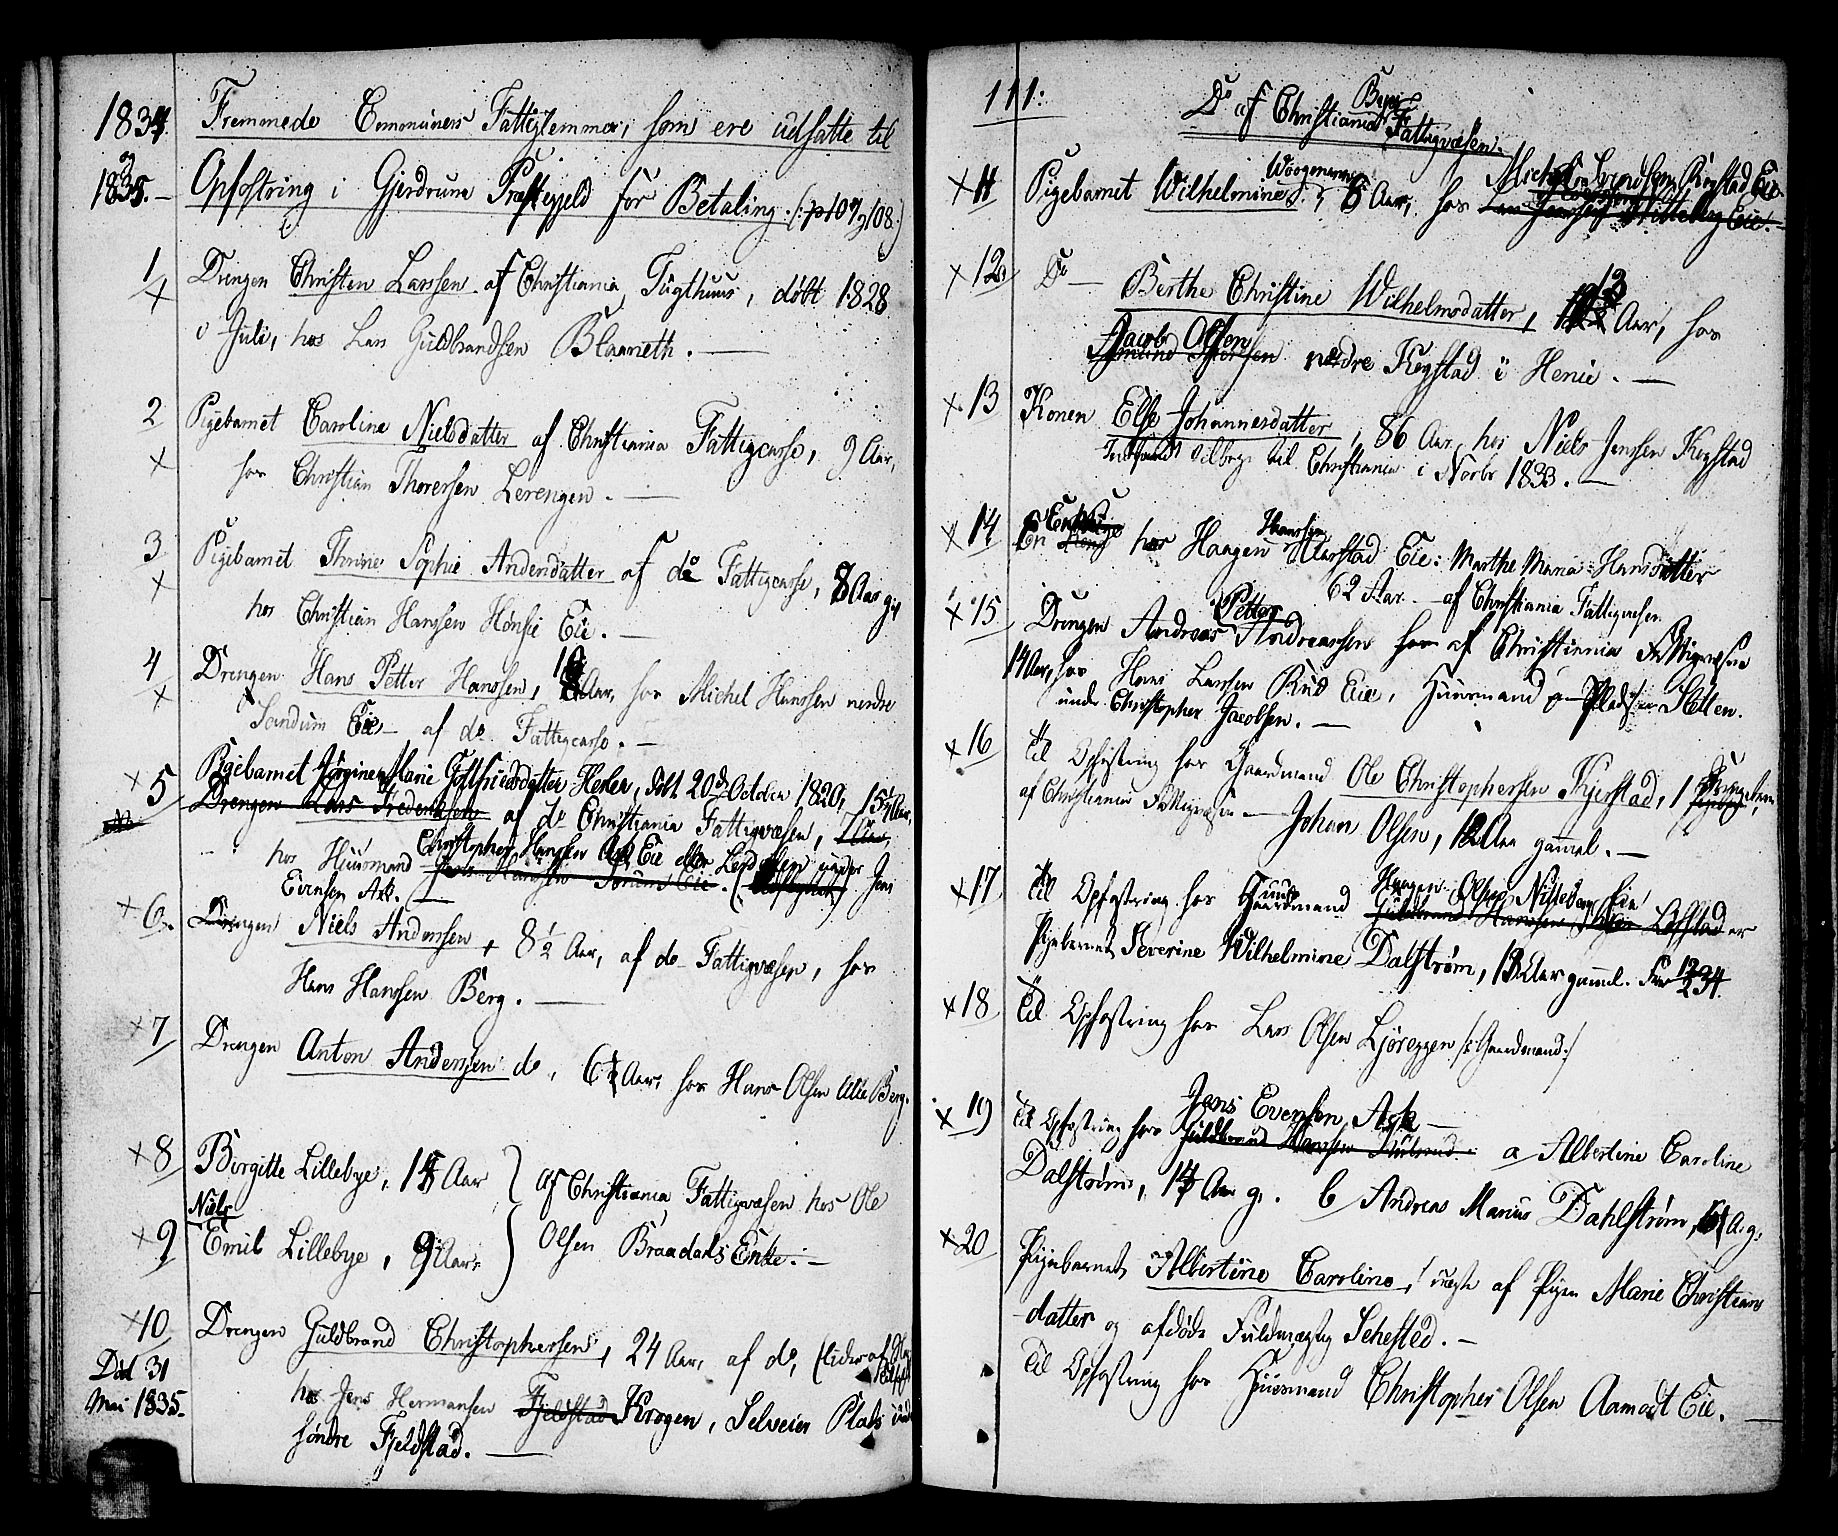 1834.
Fremmede Communers Fattiglemmer, som ere udsatte til
1835.— Opfostring i Gjerdrums Præstegjeld for Betaling. (:p 107 & 108:)
1 Drengen Christen Larssen af Christiania Tugthuus, døbt 1828
i Juli, hos Lars Guldbrandsen —
2 Pigebarnet Caroline Nielsdatter af Christiania Fattigcasse, 9 Aar,
hos Christian Thorersen Lerengen. —
3 Pigebarnet Sophie Andersdatter af do Fattigcasse, 8 Aar gl
hos Christian Hanssen Hønsie Eie. —
4 Drengen Hans Petter Hanssen, Aar, hos Michel Hanssen nerdre
Sandum Eie — af do Fattigcasse. —
× 5 Pigebarnet Jørgine Marie Gotfriedsdatter født 20de October 1820, 15 Aar,
Drengen Lars Frederiksen af do Christiania Fattigvæsen,
hos Huusmand Christopher Hanssen Ask Eie eller under Jens
Evensen Ask. —
× 6. Drengen Niels Anderssen, 8 ½ Aar, af do Fattigvæsen, hos
Hans Hanssen Berg. —
× 7 Drengen Anton Anderssen do, 6½ Aar, hos Hans Olsen Berg.
× 8 Birgitte Lillebye, Aar } af Christiania Fattigvæsen hos Ole
Niels
× 9 Emil Lillebye, 9 Aar } Olsen Braadals Enke. —
× 10 Drengen Guldbrand Christophersen, 24 Aar, af do,
Død 31
Mai 1835. hos Jens Hermansen Fjeldstad Krogen, Selveier Plads under
søndre Fjeldstad. —
111:
Do af Christiania Byes Fattigvæsen.
× 11 Pigebarnet Wilhelmine 8 Aar, hos
× 12 Do — Berthe Christine Wilhelmsdatter, 13 Aar, hos
Jacob Olsen
nedre Kogstad i Henie. —
× 13 Konen Else Johannesdatter, 86 Aar, hos Niels Jensen Kogstad
tilbage til Christiania i Novbr 1833. —
× 14 En Enke hos Haagen Hanssen Ulerstad Eie: Marthe Maria Hansdatter
62 Aar — af Christiania Fattigvæsen.
× 15 Drengen Andreas Petter Andreassen af Christiania Fattigvæsen
14 Aar, hos Hans Larssen Rud Eie, Huusmand paa Pladsen Sletten.
under Christopher Jacobsen. —
× 16 til Opfostring hos Gaardmand Ole Christophersen Kjerstad, 1 Drengebarn
af Christiania Fattigvæsen — Johan Olsen, 12 Aar gammel. —
× 17 til Opfostring hos Huusmand Haagen Olsen Nitteberg Eie er
Pigebarnet Severine Wilhelmine Dalstrøm, 13 Aar gammel.
× 18 til Opfostring hos Lars Olsen Ljøreggen /: Gaardmand:/
× 19 til Opfostring hos Jens Evensen Ask — a/ Albertine Caroline
Dalstrøm, Aar g. b/ Andreas Marius Dahlstrøm, A. g.
× 20 Pigebarnet Albertine Caroline, uægte af Pigen Marie Christians
datter og afdøde Fuldmægtig Sehested. —
til Opfostring hos Huusmand Christopher Olsen Aamodt Eie. —